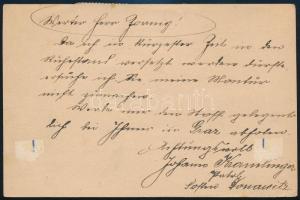 Werter Herr
Da ich in kürzester Zeit in den
Ruhestand versetzt werden dürfte
ersuche ich Sie meine Montur
nicht zumachen.
Werde mir den Stoff gelegent
lich bei Ihnen in Graz abholen.
Achtungsvoll
Johann
Donawitz